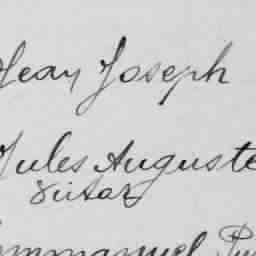 Jean Joseph
Jules Auguste
Emmanuel